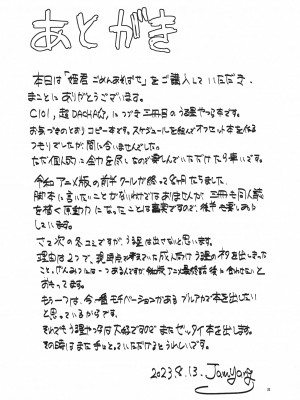 あとがき
本日は「姫君ごめんあそばせ」をご購入していただき、
まことにありがとうございます。
C101、超DACHA祭、につづき三冊目のうる星やつら本です。
お気づきのとおりコピー本です。スケジュールを組んでオフセット本を作る
つもりでしたが、間に合いませんでした。
ただ個人的に全力を尽しなので楽しんでいただけたら幸いです。
令和アニメ版の前半クールが終って8ヶ月たちました。
脚本に言いたいことがないわけではありませんが、三冊も同人誌
を描く原動力になったことは事実ですので、後半も楽しみに
しています。
さて次の冬コミですが、うる星は出せないと思います。
理由は2つで、現時点が考えていた成人向けうる星のネタを出しきった
こと。げんみつには一つあるんですが アニメ最終話後に合わせたいと
おもってます。
もう一つは、今一番モチベーションがあるブルアカで本を出したい
と思っているからです。
それでもうる星やつらは大好ですのでまたゼッタイ本を出します。
その時はまた手にとっていただけるとうれしいです。
2023.8.13. JamYang